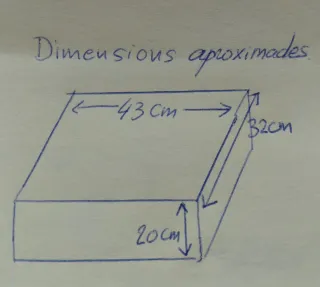 Dimensions aproximades.
43 cm
32cm
20cm